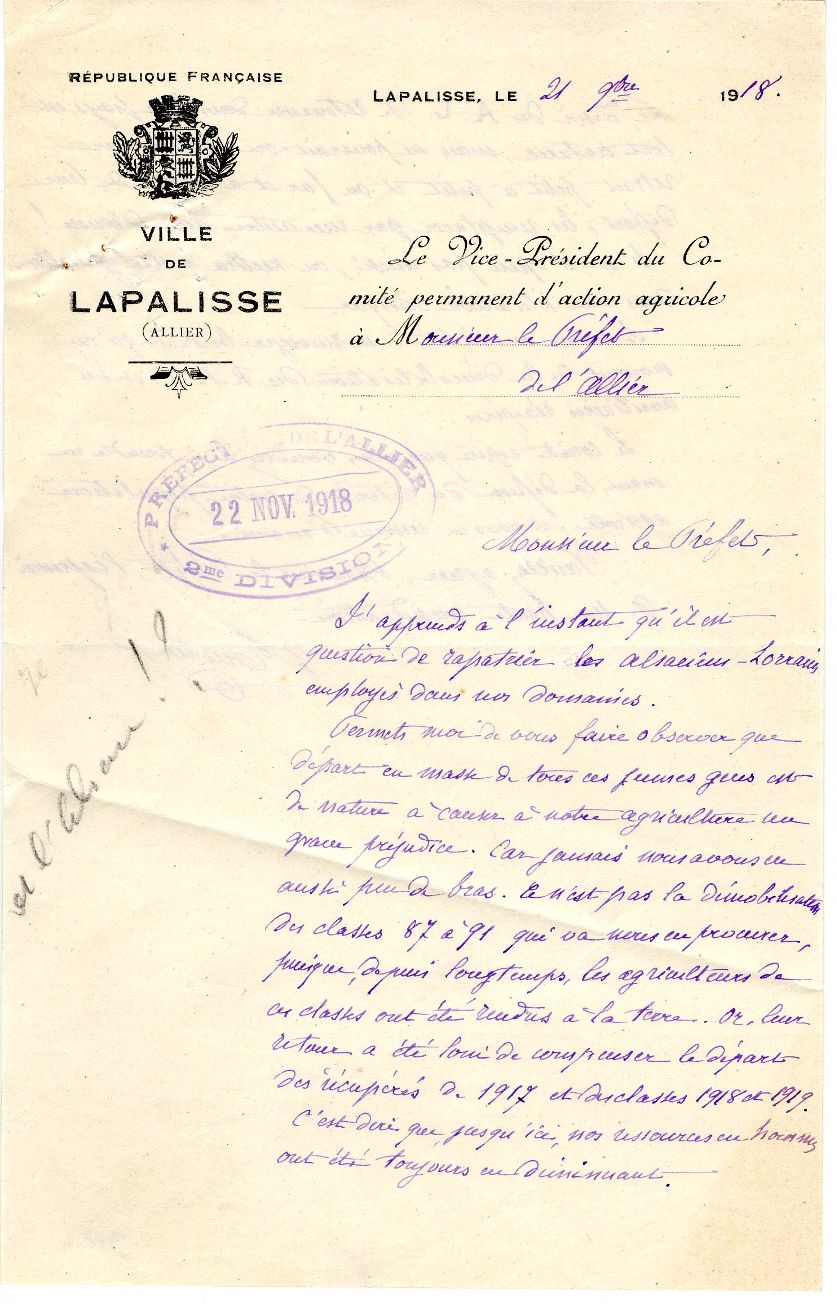 RÉPUBLIQUE FRANÇAISE
VILLE
DE
LAPALISSE
(ALLIER)
LAPALISSE, LE 21 9bre 1918.
Le Vice-Président du Co-
mité permanent d'action agricole
à Monsieur le Préfet
de l'Allier
PRÉFECT DE L'ALLIER
22 NOV. 1918
2me DIVISION
Monsieur le Préfet,
J'apprends à l'instant qu'il est
question de rapatrier les Alsaciens-Lorrains
employés dans nos domaines.
Permets moi de vous faire observer que
départ en masse de tous ces jeunes gens est
de nature à causer à notre agriculture un
grave préjudice. Car jamais nous avons eu
aussi peu de bras. Ce n'est pas la démobilisation
des classes 87 à 91 qui va nous en procurer,
puisque, depuis longtemps, les agriculteurs de
ces classes ont été rendus à la terre. Or, leur
retour a été loin de compenser le départ
des récupérés de 1917 et des classes 1918 et 1919.
C'est dire que, jusqu'ici, nos ressources en hommes
ont été toujours en diminuant.
et l'Alsace !?